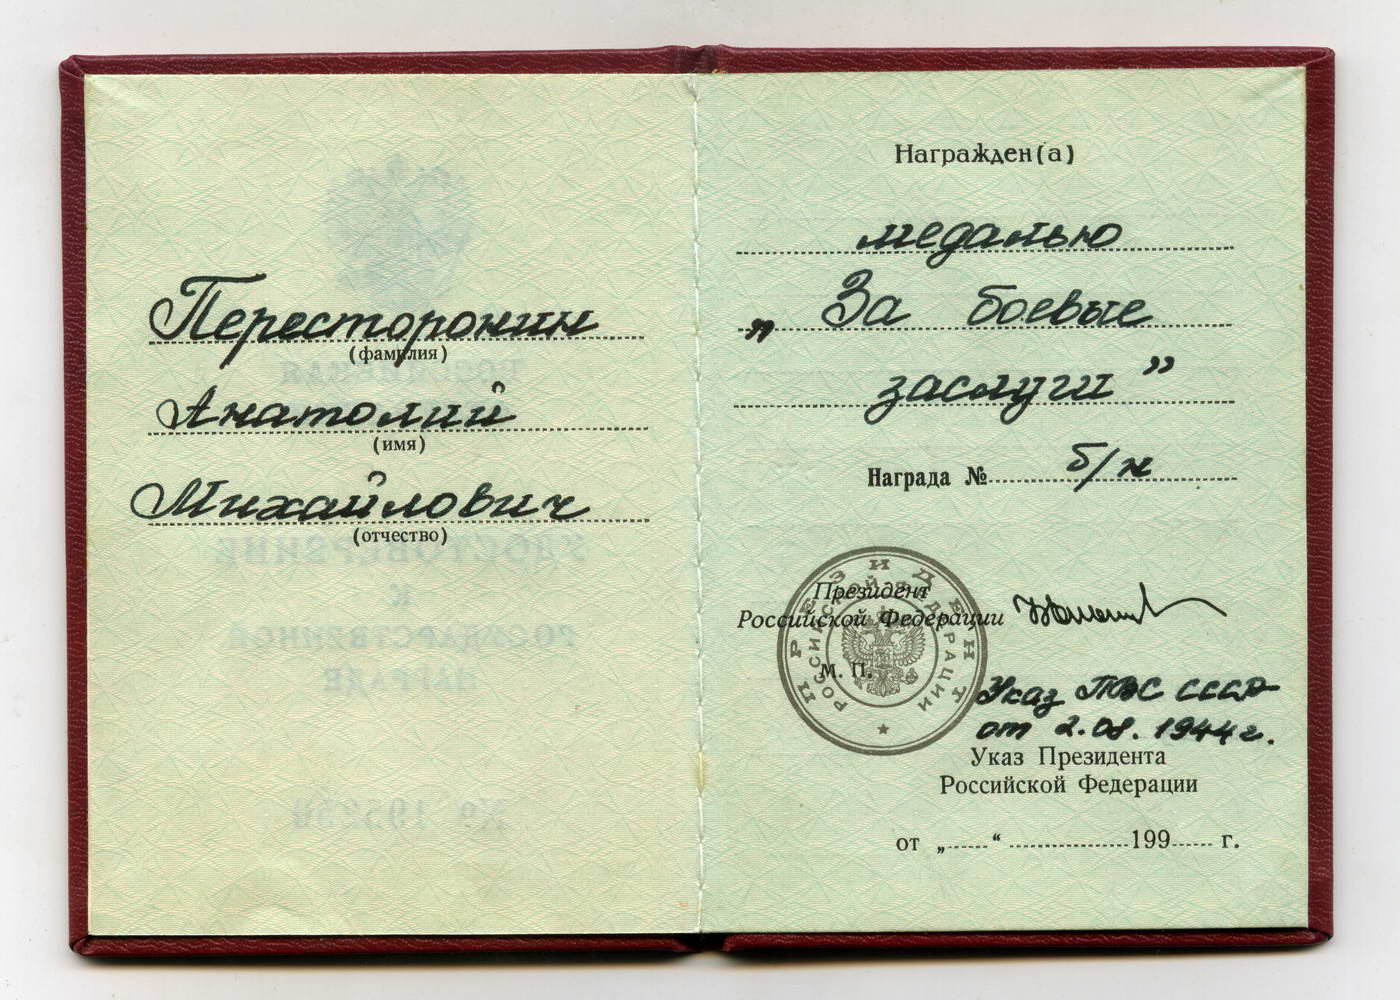 Пересторонин
(фамилия)
Анатолий
(имя)
Михайлович
(отчество)
Награжден(а)
медалью
„ За боевые
заслуги ”
Награда № б/н
ПРЕЗИДЕНТ
РОССИЙСКОЙ ФЕДЕРАЦИИ
Президент
Российской Федерации
М. П.
Указ ПВС СССР
от 2.08.1944г.
Указ Президента
Российской Федерации
от „ “ 199 г.